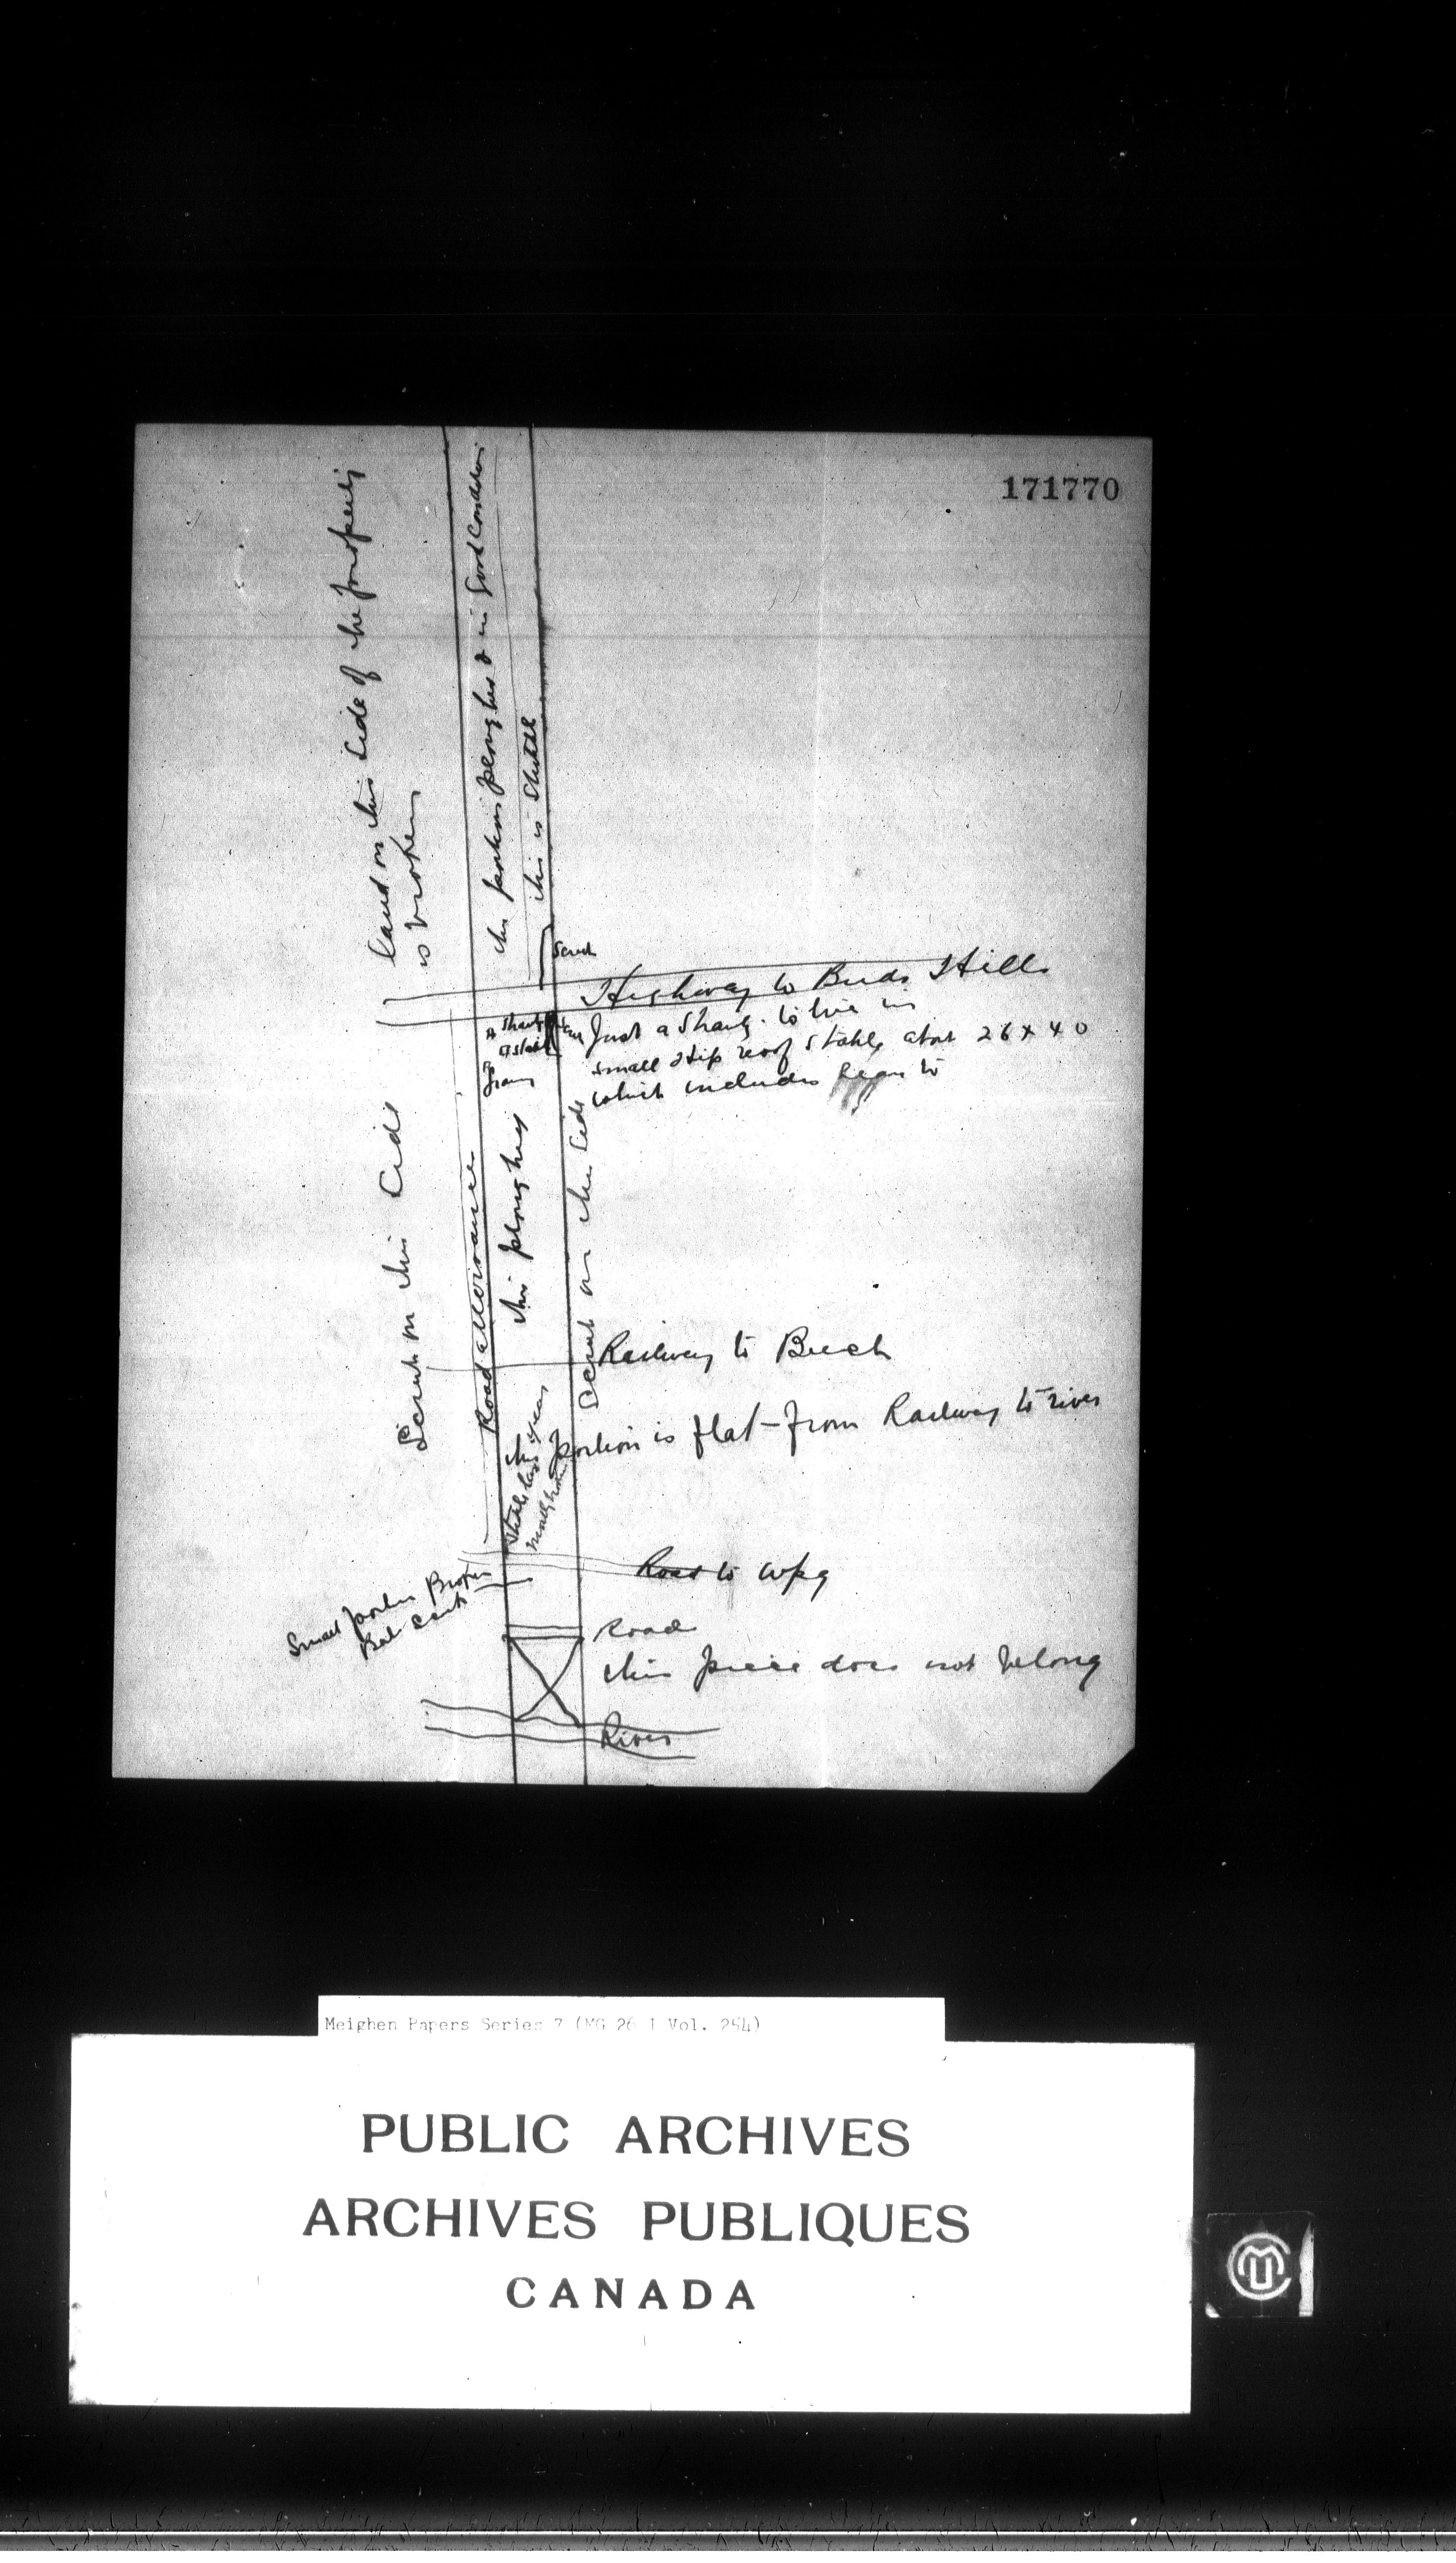 171770
Land on this side of the property
is broken
this portion ploughed & in good condition
this is stubble
Scrub
Highway to Birds Hill
A shanty
& stable
Just a shanty to live in
small hip roof stable about 26 x 40
which includes lean to
Scrub on this side
Road allowance
this ploughed
Scrub on this side
Railway to Beach
this portion is flat - from Railway to river
stubble last year
Road to Wpg
Small portion Broken
Bal scrub
Road
this piece does not belong
River
Meighen Papers Series 7 (MG 26 I Vol. 254)
PUBLIC ARCHIVES
ARCHIVES PUBLIQUES
CANADA